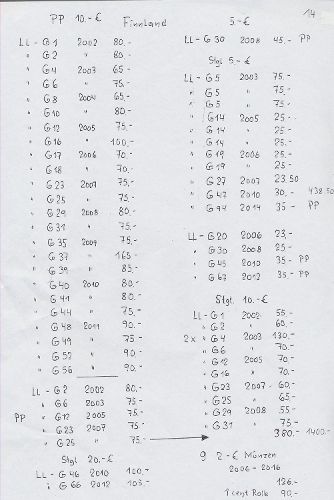 PP 10.-€ Finnland
LL - G 1 2002 80.-
" G 2 " 80.-
" G 4 2003 65-
" G 6 " 65-
" G 8 2004 65.-
" G 10 " 80.-
" G 12 2005 75.-
" G 16 " 100.-
" G 17 2006 70.-
" G 18 " 70.-
" G 23 2007 75.-
" G 25 " 75.-
" G 29 2008 80.-
" G 31 " 75.-
" G 35 2009 75.-
" G 37 " 165-
" G 39 " 85.-
" G 40 2010 80.-
" G 41 " 80.-
" G 44 " 75.-
" G 48 2011 90.-
" G 49 " 75.-
" G 52 " 90.-
" G 56 " 90.-
LL - G 2 2002 80.-
" G 6 2003 75-
PP " G 12 2005 75.-
" G 23 2007 75.-
" G 25 " 75-
Stgl 20.-€
LL - G 46 2010 100.-
" G 66 2012 103.-
14
5.-€
LL - G 30 2008 45.- PP
Stgl 5.-€
LL - G 5 2003 75.-
" G 5 " 75.-
" G 5 " 75.-
" G 14 2005 25.-
" G 14 " 25.-
" G 14 " 25.-
" G 19 2006 25.-
" G 19 " 25.-
" G 27 2007 23.50
" G 47 2010 30.- 438.50
" G 94 2014 35- PP
LL - G 20 2006 23,-
" G 30 2008 25-
" G 45 2010 35- PP
" G 67 2012 35- PP
Stgl. 10.-€
LL - G 1 2002 55-
" G 2 " 60.-
2x " G 4 2003 130.-
" G 6 " 70.-
" G 12 2005 70-
" G 16 " 70.-
" G 23 2007 60,-
" G 25 " 65-
" G 29 2008 55-
" G 31 " 75-
380.- 1400.-
9 2-€ Münzen
2006-2016
126.-
1 cent Rolle 90.-